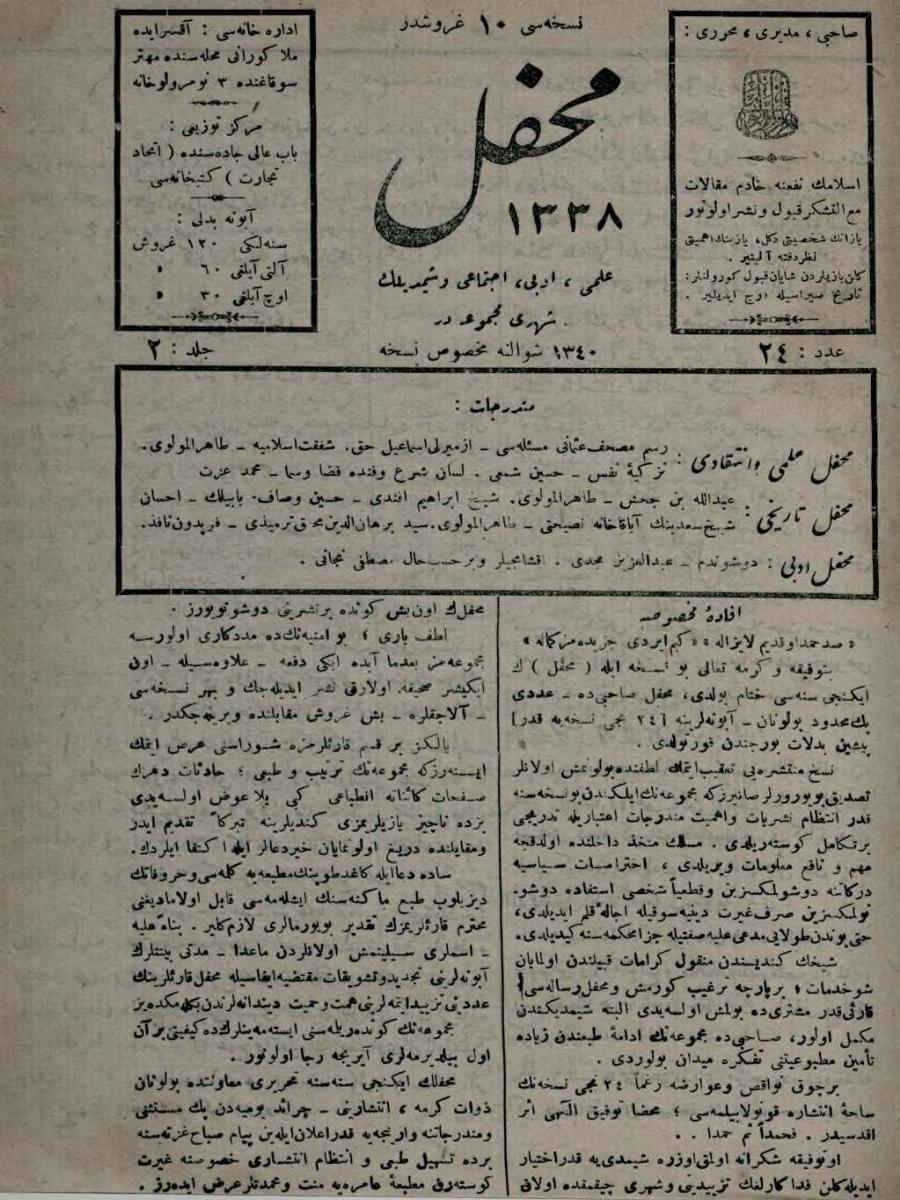 نسخه‌سی ١٠ غروشدر
صاحبی ، مدیری ، محرری :
اسلامك نفعنه خادم مقالات
مع التشكر قبول و نشر اولونور
یازانك شخصیتی دكل، یازینك اهمیتی
نظر دقته آلینیر .
تاریخ صیراسیله درج ایدیلیر .
محفل
١٣٣٨
علمی ، ادبی ، اجتماعی و شیمدیلك
شهری مجموعه در
١٣٤٠ شوالنه مخصوص نسخه
اداره خانه‌سی : آقسرایده
ملا كورانی محله‌سنده مهتر
سوقاغنده ٣ نومرولو خانه
مركز توزیعی :
باب عالی جاده‌سنده ( اتحاد
تجارت ) كتبخانه‌سی
آبونه بدلی :
سنه‌لكی ١٢٠ غروش
آلتی آیلغی ٦٠ »
اوچ آیلغی ٣٠ »
عدد : ٢٤
جلد : ٢
مندرجات :
محفل علمی و انتقادی : رسم مصحف عثمانی مسئله‌سی ــ ازمیرلی اسماعیل حقی. شفقت اسلامیه ــ طاهر المولوی.
تزكیۀ نفس ــ حسین شمسی . لسان شرع و فنده فضا و سما ــ محمد عزت
محفل تاریخی : عبدالله بن جحش ــ طاهر المولوی. شیخ ابراهیم افندی ــ حسین وصاف. بابیلك ــ احسان
شیخ سعدینك آباقاخانه نصیحتی ــ طاهر المولوی. سید برهان‌الدین محقق ترمیذی ــ فریدون نافذ.
محفل ادبی : دوشوندم ــ عبدالعزیز مجدی . آقشامجیلر و بر حسب حال مصطفی نجاتی .
افادۀ مخصوصه
« صد حمد او قدیم لایزاله » « كیم ایردی جریده‌مز كماله »
بتوفیقه و كرمه تعالی بو نسخه ایله ( محفل ) ك
ایكنجی سنه‌سی ختام بولدی، محفل صاحبی ده ــ عددی
پك محدود بولونان ــ آبونه‌لرینه [ ٢٤ نجی نسخه‌یه قدر ]
پیشین بدلات بورجندن قورتولدی .
نسخ منتشره‌یی تعقیب ایتمك لطفنده بولونمش اولانلر
تصدیق بویورورلر صانیرز كه مجموعه‌نك ایلكندن بو نسخه‌سنه
قدر انتظام نشریات و اهمیت مندرجات اعتباریله تدریجی
بر تكامل كوسته‌ریلدی . مسلك متخذ داخلنده اولدقجه
مهم و نافع معلومات ویریلدی ، احتراصات سیاسیه
دركاتنه دوشولمكسزین و قطعیاً شخصی استفاده دوشو-
نولمكسزین صرف غیرت دینیه سوقیله اجاله قلم ایدیلدی،
حتی بوندن طولایی مدعی علیه صفتیله جزا محكمه‌سنه كیدیلدی.
شیخك كندیسندن منقول كرامات قبیلندن اولمایان
شو خدمات ؛ بر پارچه ترغیب كورمش و محفل رساله‌سی
قارئی قدر مشتری ده بولمش اولسه‌یدی البته شیمدیكندن
مكمل اولور، صاحبی ده مجموعه‌نك ادامۀ طبعندن زیاده
تأمین مطبوعیتنی تفكره میدان بولوردی .
بر چوق نواقص و عوارضه رغماً ٢٤ نجی نسخه‌نك
ساحۀ انتشاره قونولابیلمه‌سی ؛ محضا توفیق الٓهی اثر
اقدسیدر . فحمداً ثم حمدا . .
او توفیقه شكرانه اولمق اوزره شیمدی‌یه قدر اختیار
ایدیله‌كلن فداكارلغك تزییدینی و شهری چیقمقده اولان
محفلك اون بش كونده بر نشرینی دوشونویورز .
لطف باری ؛ بو امنیه‌نك ده مددكاری اولورسه
مجموعه‌مز بعدما آیده ایكی دفعه ــ علاوه‌سیله ــ اون
ایكیشر صحیفه اولارق نشر ایدیله‌جك و بهر نسخه‌سی
ــ آلاجقلره ــ بش غروش مقابلنده ویریله‌جكدر .
یالكز بر قسم قارئلرمزه شوراسنی عرض ایتمك
ایسته‌رزكه مجموعه‌نك ترتیب و طبعی ؛ حادثات دهرك
صفحات كائناته انطباعی كبی بلا عوض اولسه‌یدی
بزده ناچیز یازیلریمزی كندیلرینه تبركاً تقدیم ایدر
و مقابلنده دریغ اولونمایان خیر دعالر ایله اكتفا ایلردك.
ساده دعا ایله كاغد طوپنك مطبعه‌یه كله‌سی و حروفاتك
دیزیلوب طبع ماكنه‌سنك ایشله‌مه‌سی قابل اولامادیغنی
محترم قارئلریمزك تقدیر بویورمالری لازم كلیر . بناءً علیه
ــ اسملری سیلینمش اولانلردن ماعدا ــ مدتی بیتنلرك
آبونه‌لرینی تجدید و تشویقات مقتضیه ایفاسیله محفل قارئلرینك
عددینی تزیید ایتمه‌لرینی همت و حمیت دیندانه‌لرندن بكله‌مكده‌یز
مجموعه‌نك كونده‌ریله‌سنی ایسته‌مه‌ینلرك ده كیفیتی بر آن
اول بیلدیرمه‌لری آیریجه رجا اولونور .
محفلك ایكنجی سنه‌سنه تحریری معاونتده بولونان
ذوات كرمه ، انتشارینی ــ جرائد یومیه‌دن پك مستثنی
و مندرجاتنه وارنجه‌یه قدر اعلان ایله‌ین پیام صباح غزته‌سنه
برده تسهیل طبعی و انتظام انتشاری خصوصنه غیرت
كوسته‌رن مطبعۀ عامره‌یه منت و محمدتلر عرض ایده‌رز .